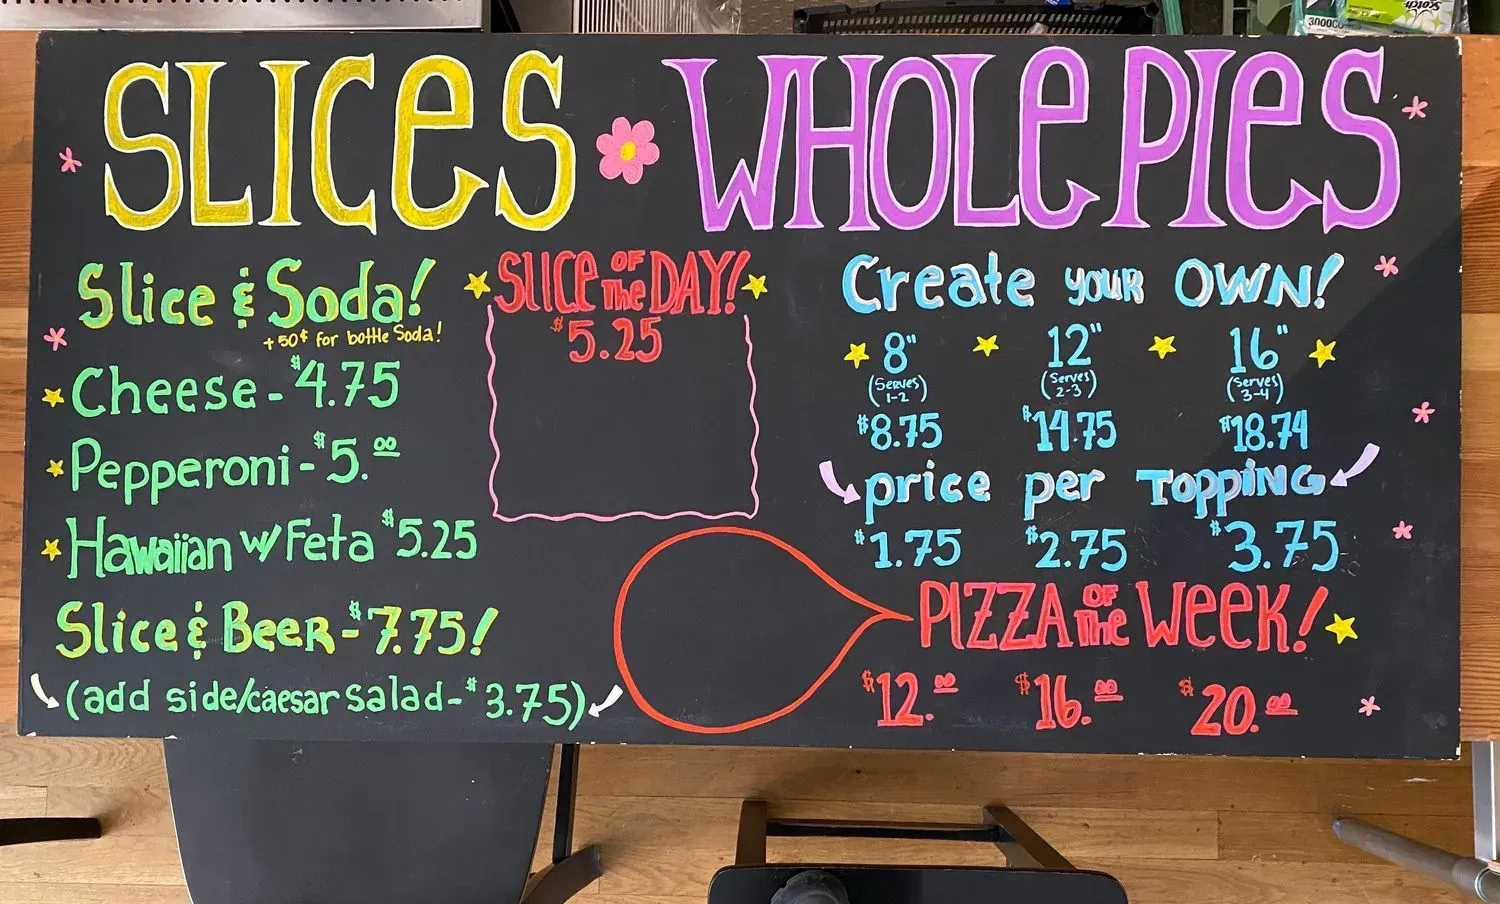 SLICES
WHOLE PIES
Slice & Soda!
+50¢ for bottle Soda!
Cheese - $4.75
Pepperoni - $5.00
Hawaiian w/ Feta $5.25
Slice & Beer - $7.75!
(add side/caesar salad - $3.75)
SLICE OF THE DAY!
$5.25
Create your OWN!
8" 12" 16"
(Serves 1-2) (Serves 2-3) (Serves 3-4)
$8.75 $14.75 $18.74
price per TOPPING
$1.75 $2.75 $3.75
PIZZA OF THE WEEK!
$12.00 $16.00 $20.00
3000CC
Scotch